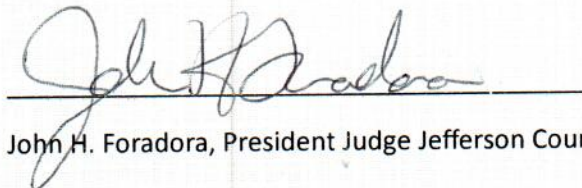 John H. Foradora
John H. Foradora, President Judge Jefferson Coun